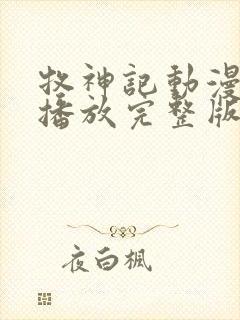 牧神記動漫
播放完整版
夜白楓